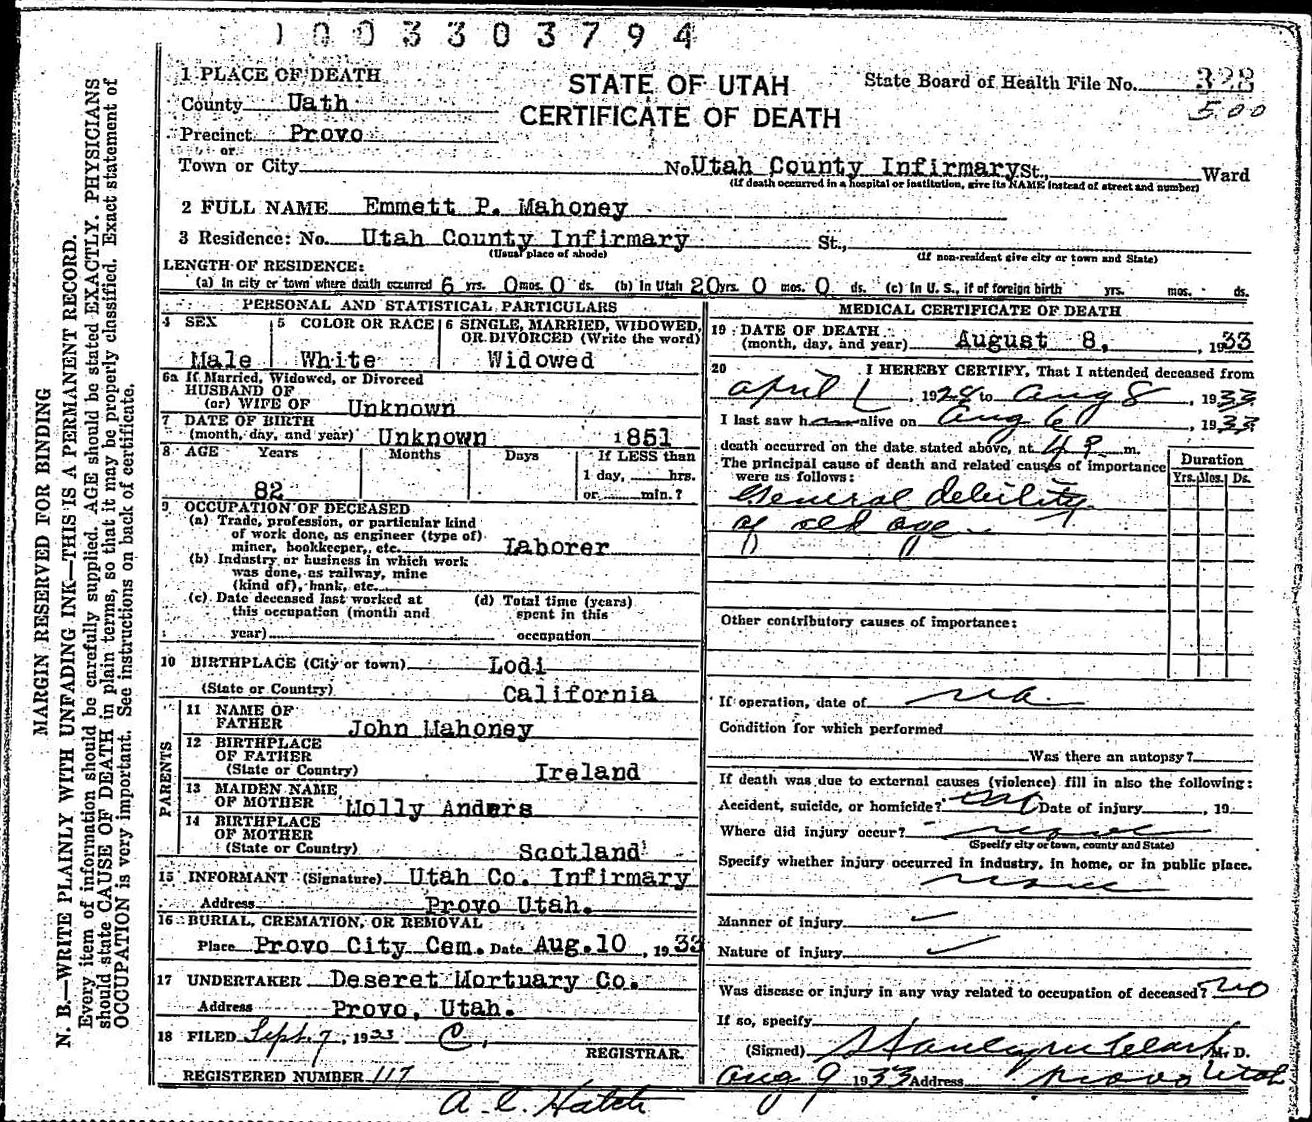 1003303794
1 PLACE OF DEATH
STATE OF UTAH
CERTIFICATE OF DEATH
State Board of Health File No. 328
500
County Uath
Precinct Provo
or
Town or City No. Utah County Infirmary St., Ward
(If death occurred in a hospital or institution, give its NAME instead of street and number)
2 FULL NAME Emmett P. Mahoney
3 Residence: No. Utah County Infirmary St.,
(Usual place of abode) (If non-resident give city or town and State)
LENGTH OF RESIDENCE:
(a) In city or town where death occurred 6 yrs. 0 mos. 0 ds. (b) in Utah 20 yrs. 0 mos. 0 ds. (c) In U. S., if of foreign birth yrs. mos. ds.
PERSONAL AND STATISTICAL PARTICULARS
4 SEX
Male
5 COLOR OR RACE
White
6 SINGLE, MARRIED, WIDOWED,
OR DIVORCED (Write the word)
Widowed
6a If Married, Widowed, or Divorced
HUSBAND OF
(or) WIFE OF Unknown
7 DATE OF BIRTH
(month, day, and year) Unknown 1851
8 AGE Years Months Days If LESS than
1 day, hrs.
82 or min.?
9 OCCUPATION OF DECEASED
(a) Trade, profession, or particular kind
of work done, as engineer (type of)
miner, bookkeeper, etc. Laborer
(b) Industry or business in which work
was done, as railway, mine
(kind of), bank, etc.
(c) Date deceased last worked at (d) Total time (years)
this occupation (month and spent in this
year) occupation
10 BIRTHPLACE (City or town) Lodi
(State or Country) California
PARENTS
11 NAME OF
FATHER John Mahoney
12 BIRTHPLACE
OF FATHER
(State or Country) Ireland
13 MAIDEN NAME
OF MOTHER Molly Anders
14 BIRTHPLACE
OF MOTHER
(State or Country) Scotland
15 INFORMANT (Signature) Utah Co. Infirmary
Address Provo Utah.
16 BURIAL, CREMATION, OR REMOVAL
Place Provo City Cem. Date Aug.10, 1933
17 UNDERTAKER Deseret Mortuary Co.
Address Provo, Utah.
18 FILED Sept. 7, 1933
REGISTRAR.
REGISTERED NUMBER 117
A. C. Hatch
MEDICAL CERTIFICATE OF DEATH
19 DATE OF DEATH
(month, day, and year) August 8, 1933
20 I HEREBY CERTIFY, That I attended deceased from
april 1, 1928 to Aug 8, 1933
I last saw h alive on Aug 6, 1933
death occurred on the date stated above, at 4 P. m.
The principal cause of death and related causes of importance
were as follows:
Duration
Yrs. Mos. Ds.
General debility
of old age
Other contributory causes of importance:
If operation, date of no
Condition for which performed
Was there an autopsy?
If death was due to external causes (violence) fill in also the following:
Accident, suicide, or homicide? Date of injury, 19
Where did injury occur? none
(Specify city or town, county and State)
Specify whether injury occurred in industry, in home, or in public place.
none
Manner of injury
Nature of injury
Was disease or injury in any way related to occupation of deceased? no
If so, specify
(Signed) M. D.
Aug 9 1933 Address Provo Utah
MARGIN RESERVED FOR BINDING
N. B.—WRITE PLAINLY WITH UNFADING INK—THIS IS A PERMANENT RECORD.
Every item of information should be carefully supplied. AGE should be stated EXACTLY. PHYSICIANS
should state CAUSE OF DEATH in plain terms, so that it may be properly classified. Exact statement of
OCCUPATION is very important. See instructions on back of certificate.